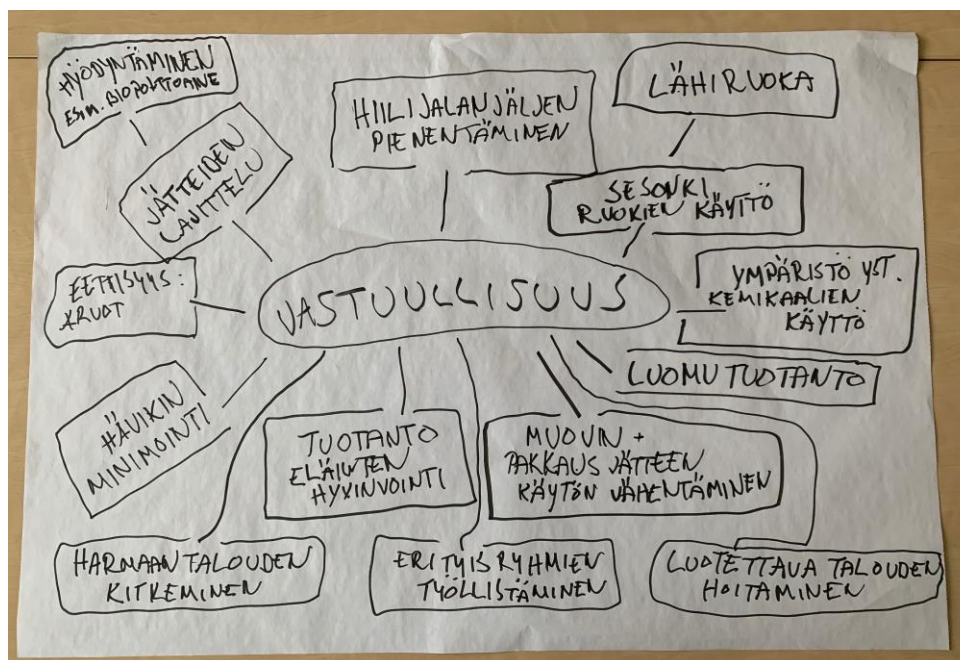 HYÖDYNTÄMINEN
ESIM. BIOPOLTTOAINE
HIILIJALANJÄLJEN
PIENENTÄMINEN
LÄHIRUOKA
JÄTTEIDEN
LAJITTELU
SESONKI
RUOKIEN KÄYTTÖ
EETTISYYS:
ARVOT
VASTUULLISUUS
YMPÄRISTÖ YST.
KEMIKAALIEN
KÄYTTÖ
LUOMUTUOTANTO
HÄVIKIN
MINIMOINTI
TUOTANTO
ELÄINTEN
HYVINVOINTI
MUOVIN +
PAKKAUS JÄTTEEN
KÄYTÖN VÄHENTÄMINEN
HARMAAN TALOUDEN
KITKEMINEN
ERITYISRYHMIEN
TYÖLLISTÄMINEN
LUOTETTAVA TALOUDEN
HOITAMINEN